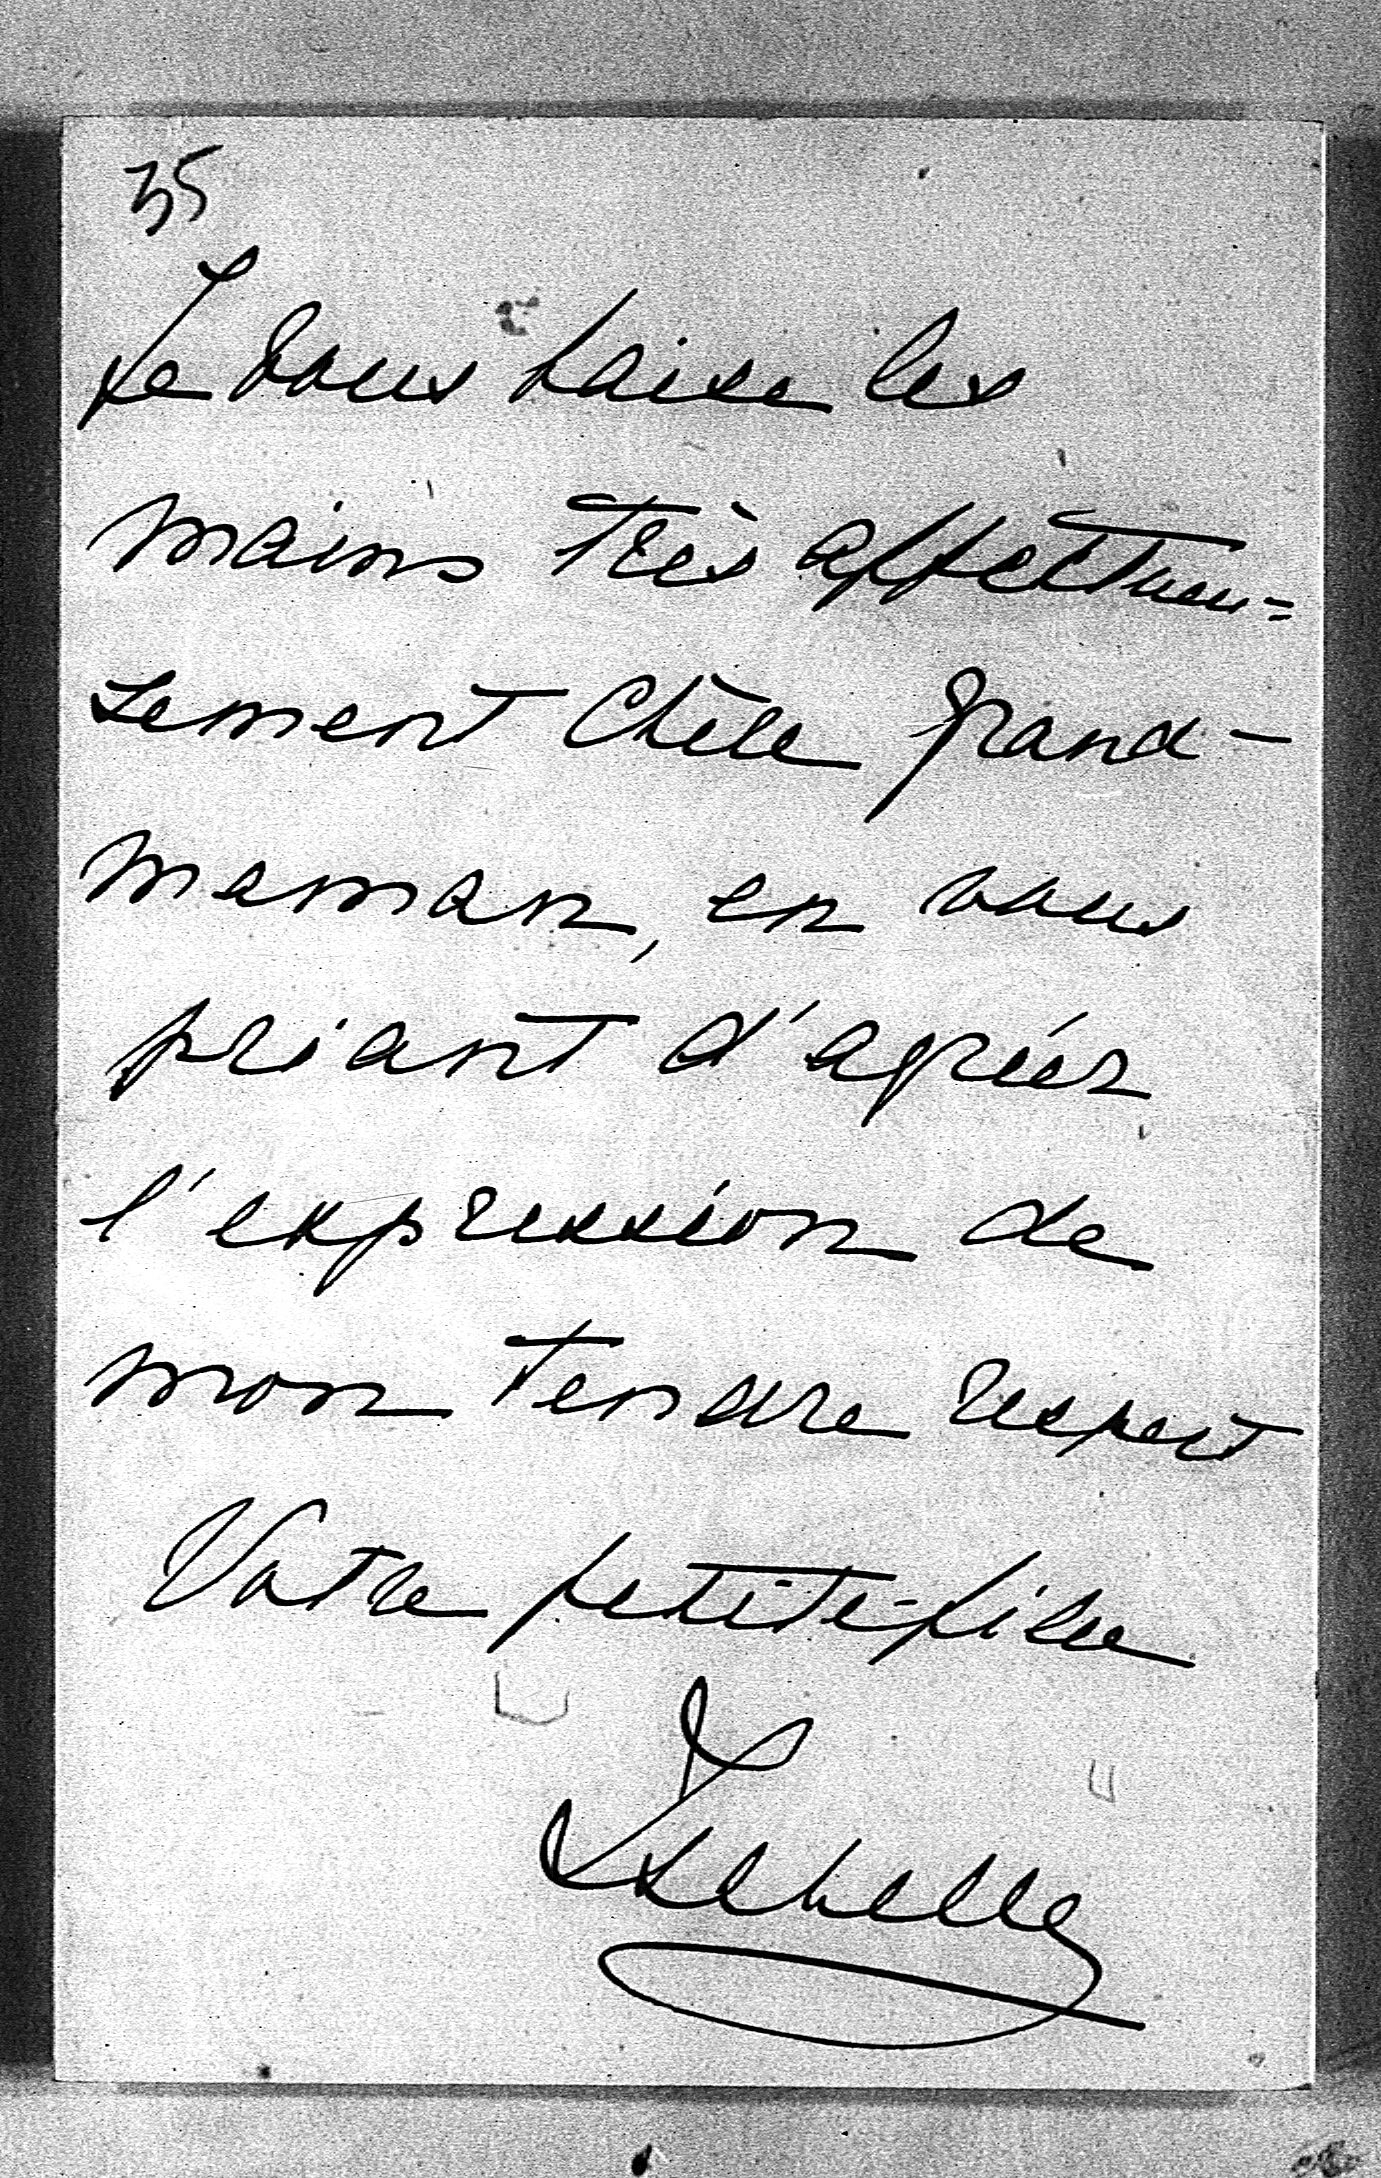 35
Je vous baise les
mains très affectueu=
sement Chère Grand-
maman, en vous
priant d'agréer
l'expression de
mon tendre respect
Votre petite-fille
Isabelle